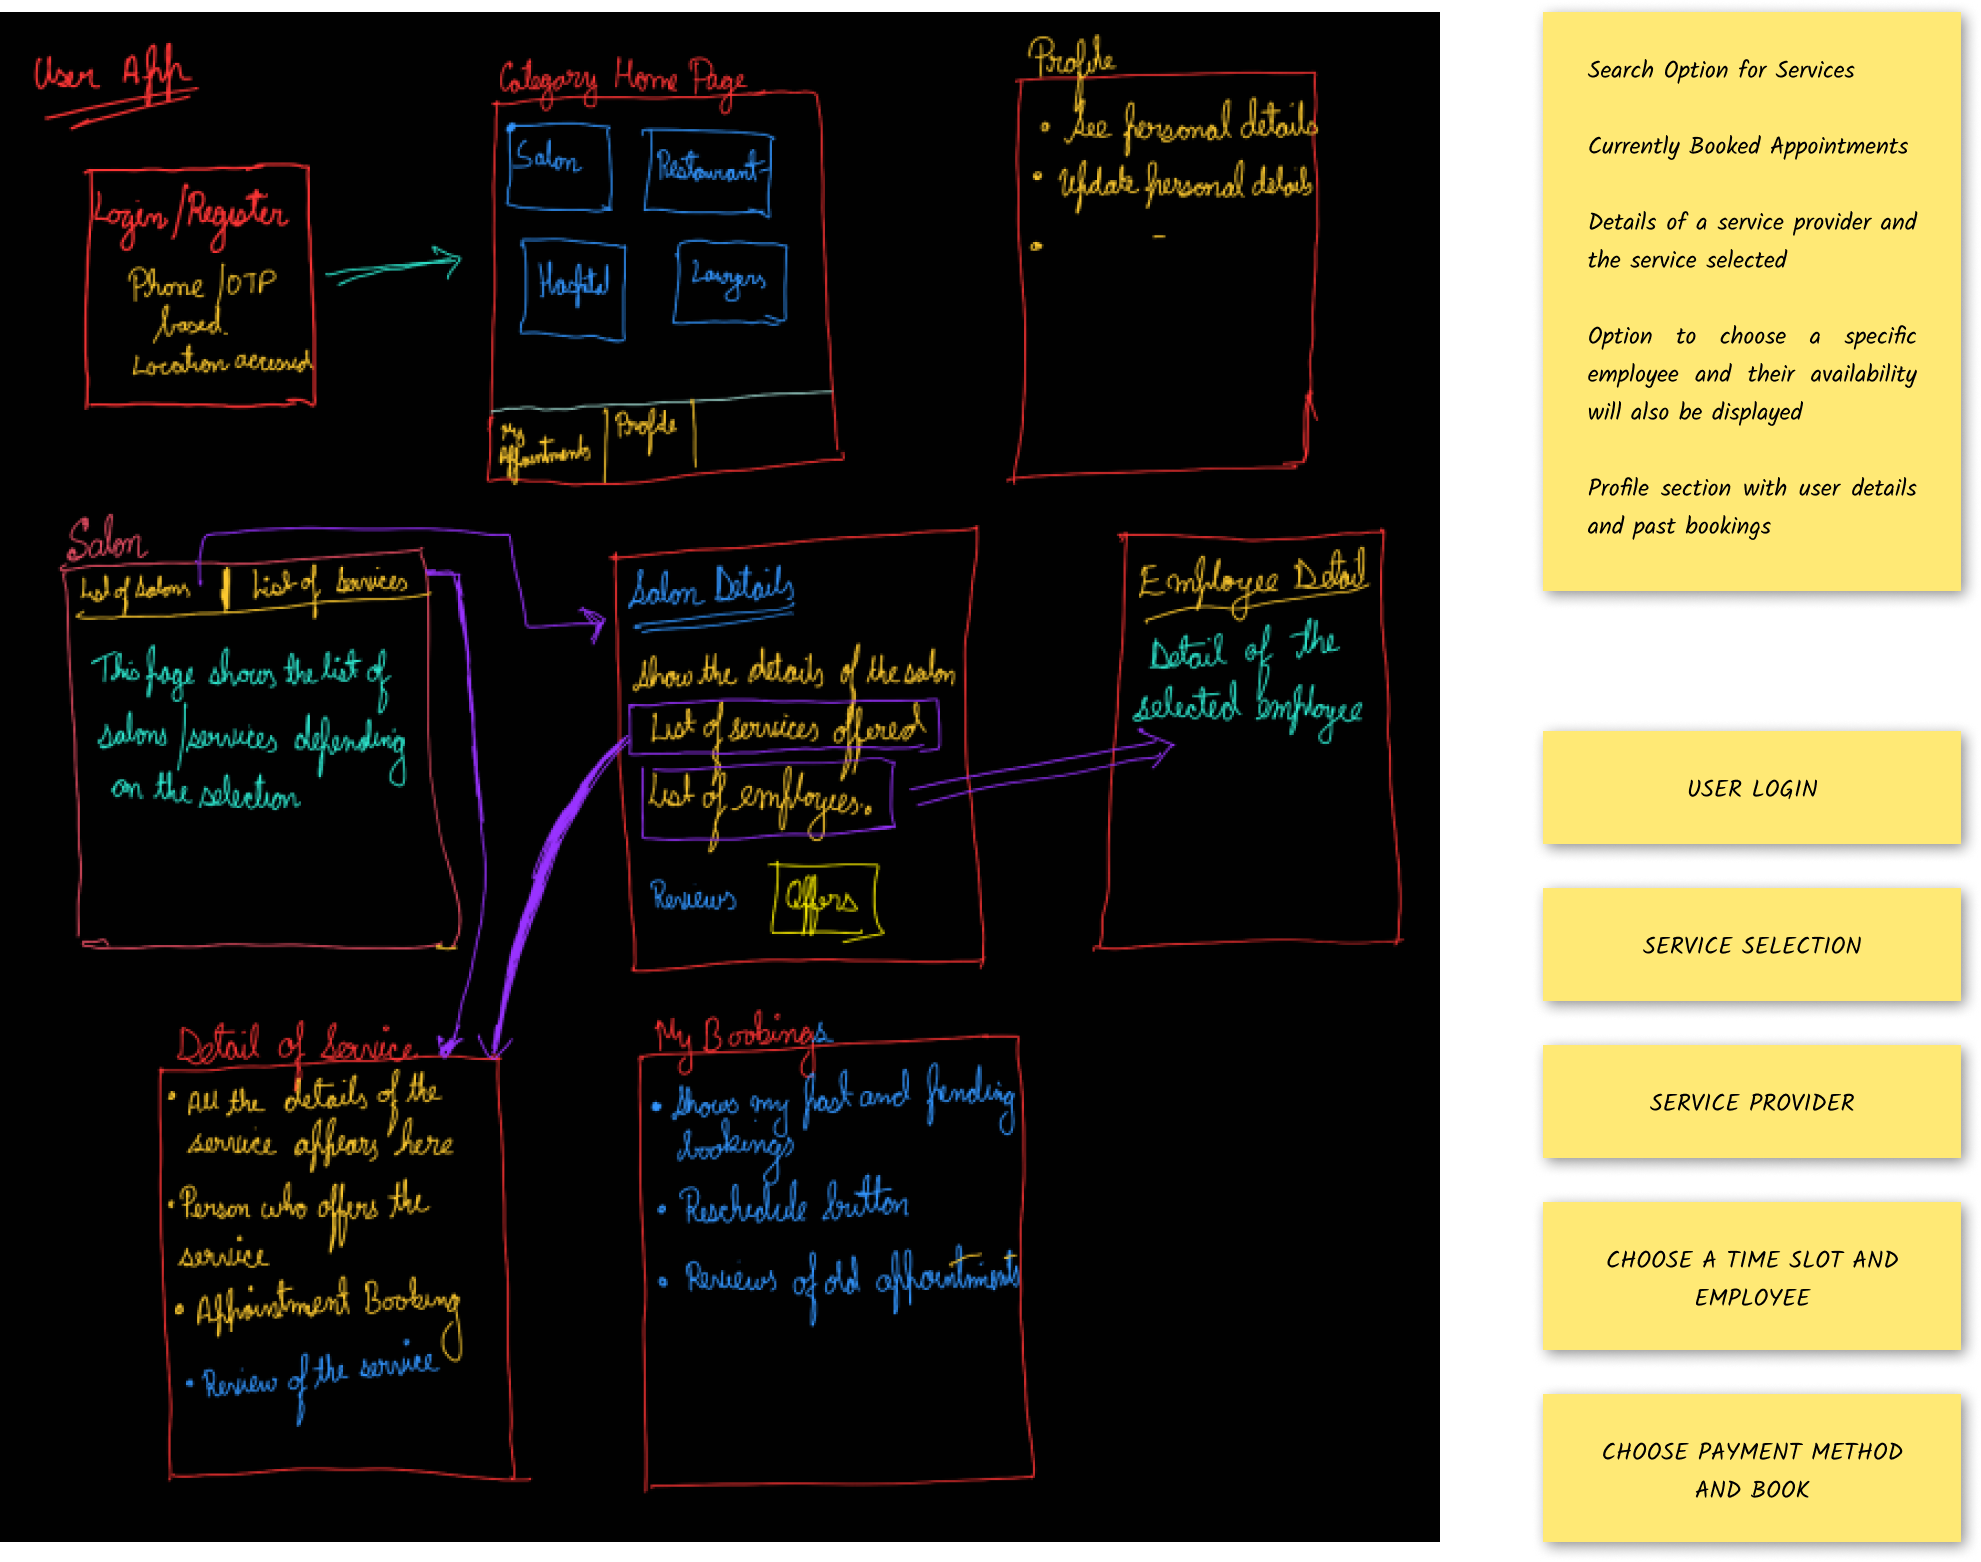 User App
Login/Register
Phone/OTP
based.
Location accessed
Category Home Page
Salon
Restaurant
Hospital
Lawyers
My
Appointments
Profile
Profile
• See personal details
• Update personal details
•
Salon
List of Salons | List of services
This page shows the list of
salons/services depending
on the selection
Salon Details
Show the details of the salon
List of services offered
List of employees.
Reviews
Offers
Employee Detail
Detail of the
selected employee
Detail of Service
• All the details of the
service appears here
• Person who offers the
service
• Appointment Booking
• Review of the service
My Bookings
• Shows my past and pending
bookings
• Reschedule button
• Reviews of old appointments
Search Option for Services
Currently Booked Appointments
Details of a service provider and
the service selected
Option to choose a specific
employee and their availability
will also be displayed
Profile section with user details
and past bookings
USER LOGIN
SERVICE SELECTION
SERVICE PROVIDER
CHOOSE A TIME SLOT AND
EMPLOYEE
CHOOSE PAYMENT METHOD
AND BOOK